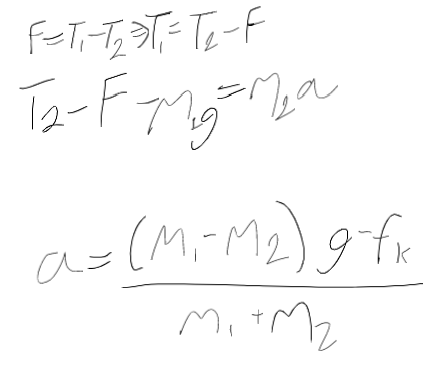 F=T₁-T₂⇒T₁=T₂-F
T₂-F-M₂g=M₂a
a=(M₁-M₂)g-fₖ
M₁+M₂